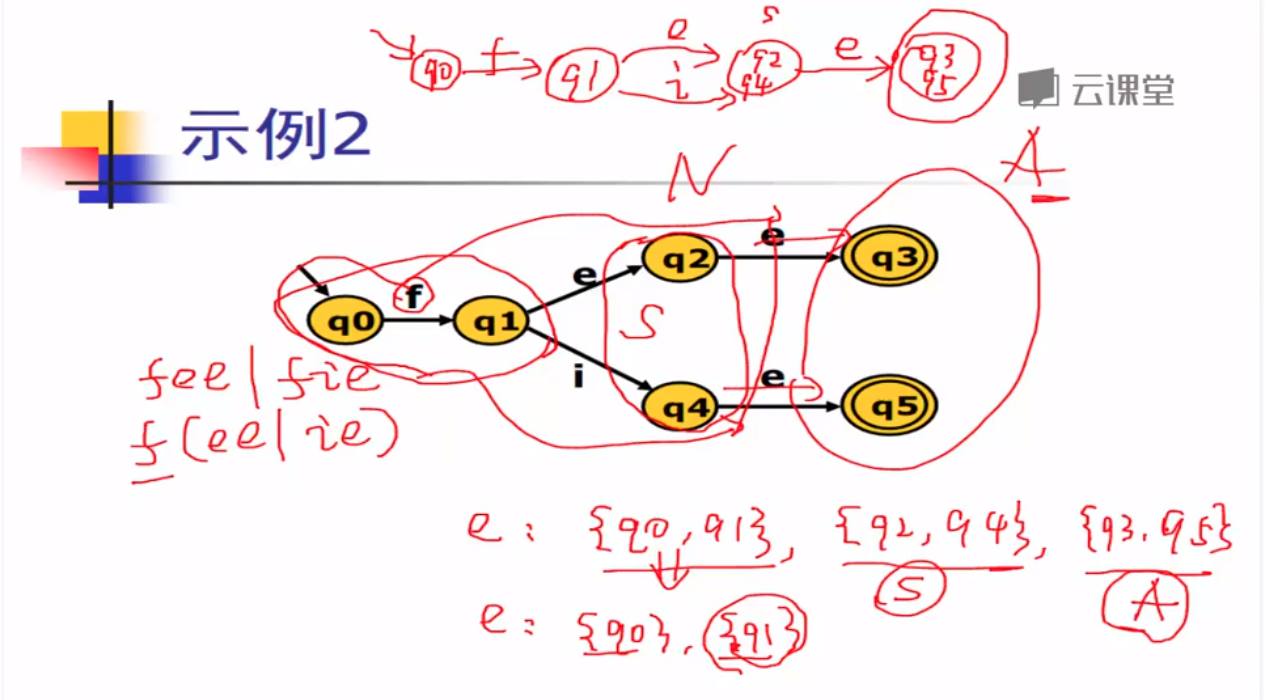 e s
q0 f q1 i q2 q4 e q3 q5
云课堂
示例2
N A
e q2 e q3
q0 f q1 S
i q4 e q5
fee|fie
f(ee|ie)
e: {q0,q1}, {q2,q4}, {q3.q5}
S A
e: {q0}, {q1}